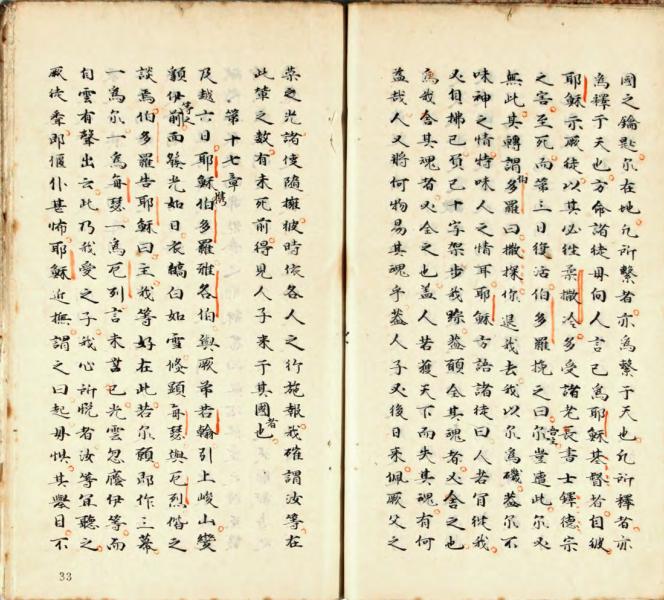 國之鑰匙尔在地凡所繫者亦為繫于天也凡所釋者亦
為釋于天也方命諸徒毋向人言己為耶穌基督者自彼
耶穌示厥徒以其必往柔撒冷多受諸老長書士鐸德宗
之害至死而第三日復活伯多羅挽之曰尔豈處此尔必
無此其轉謂伯多羅曰撒探你退我去我以尔為磯蓋尔不
味神之情特味人之情耳耶穌方語諸徒曰人若冐從我
必自拂己負己十字架步我踪蓋願全其魂者必舍之也
為我舍其魂者必全之也盖人若獲天下而失其魂有何
益哉人又將何物易其魂乎蓋人子必後日来佩厥父之
荣之光諸使隨擁彼時依各人之行施報我確謂汝等在
此輩之数有未死前得見人子来于其國者也
第十七章
及越六日耶穌攜伯多羅雅各伯與厥弟若翰引上峻山變
額伊等之前面發光如日衣皜白如雪倐顕每瑟與厄列偕之
談焉伯多羅告耶穌曰主我等好在此若尔願即作三幕
一為尔一為每瑟一為厄列言未訖光雲忽廕伊等而
自雲有聲出云此乃我愛之子我心所悅者汝等宜聽之
厥徒羣即偃仆甚怖耶穌近撫謂之曰起毋惧其舉目不
33